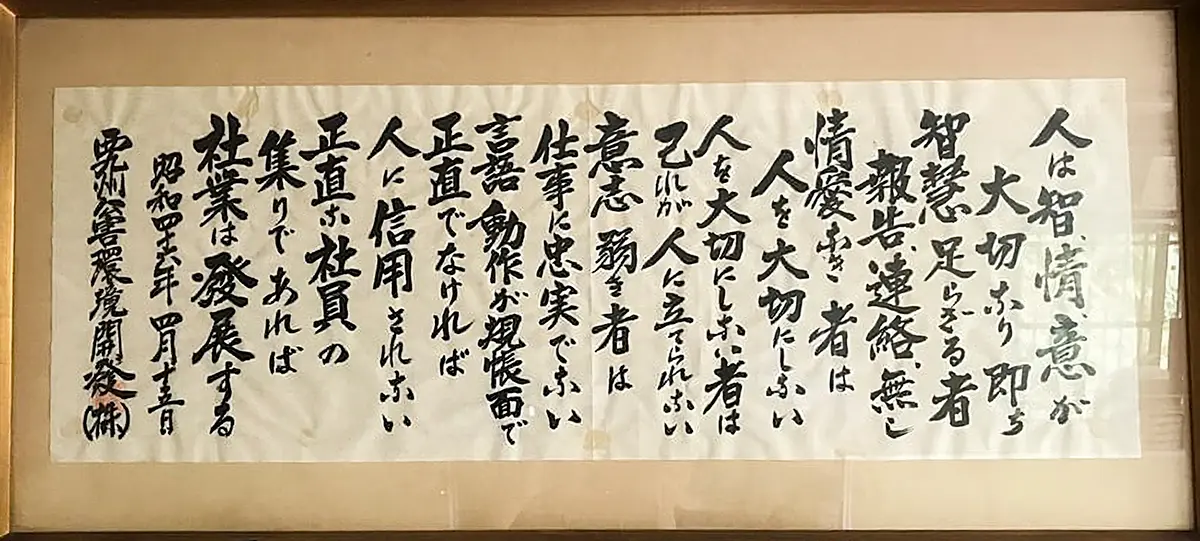 人は智、情、意が
大切なり即ち
智慧足らざる者
報告、連絡、無し
情愛なき者は
人を大切にしない
人を大切にしない者は
己れが人に立てられない
意志弱き者は
仕事に忠実でない
言語動作が規帳面で
正直でなければ
人に信用されない
正直な社員の
集りであれば
社業は發展する
昭和四十六年四月十五日
公害環境開發(株)